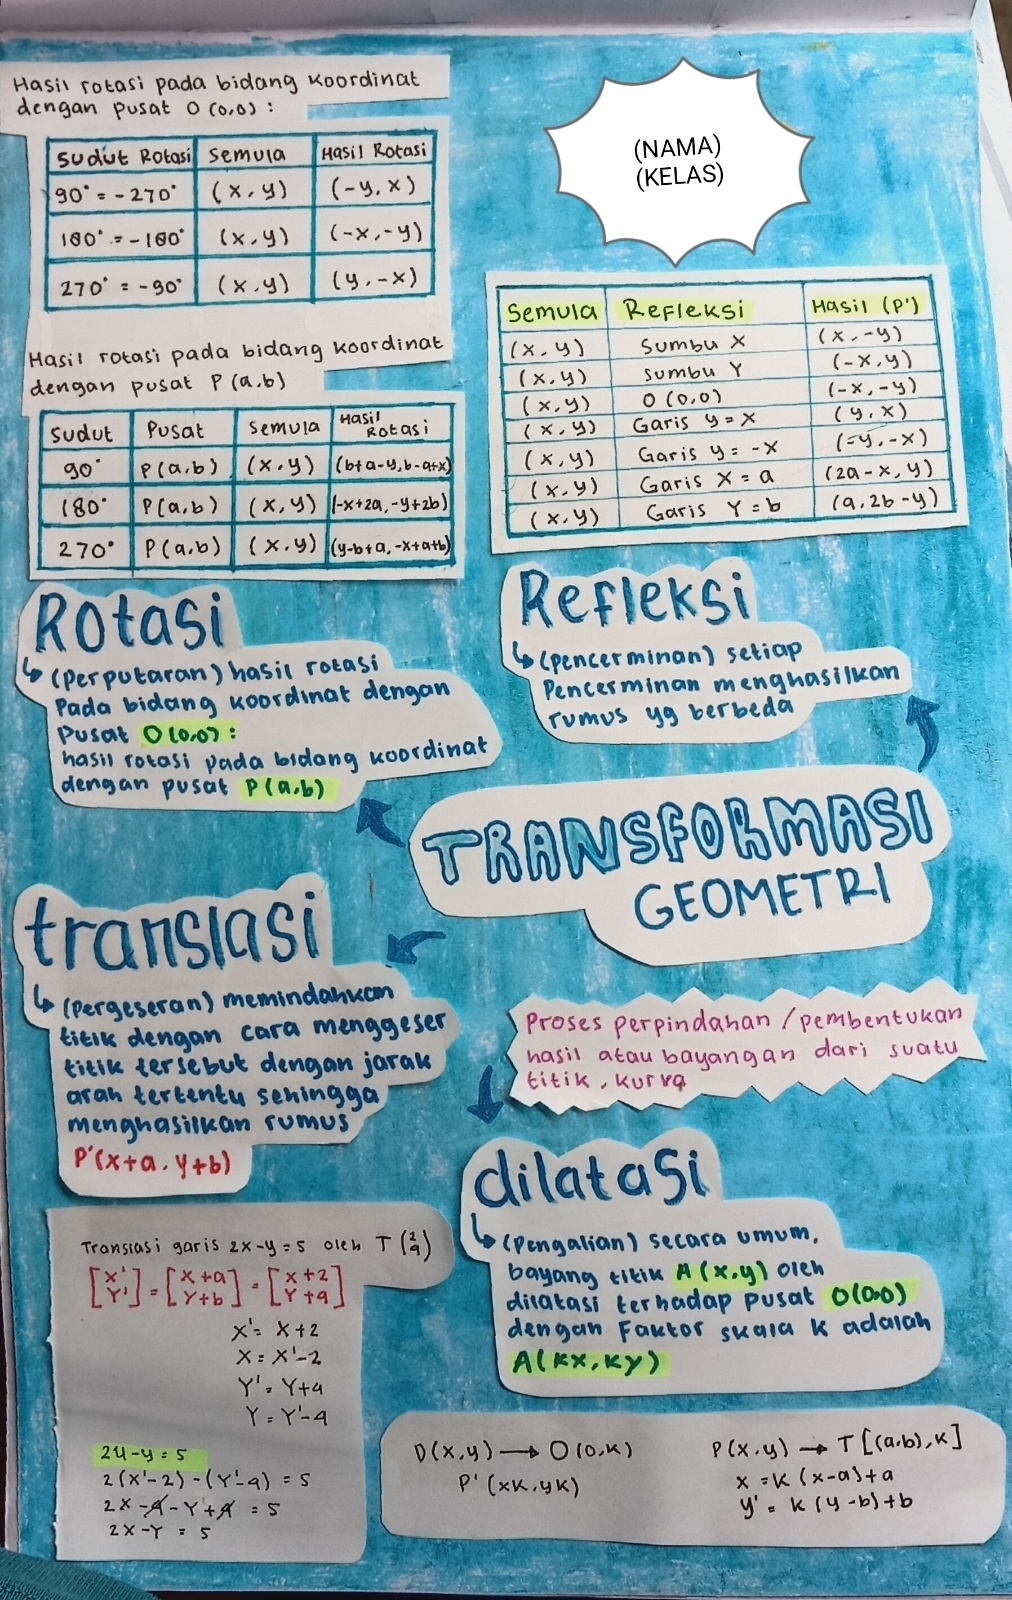 Hasil rotasi pada bidang koordinat
dengan pusat O (0,0) :
Sudut Rotasi | Semula | Hasil Rotasi
90° = -270° | (x,y) | (-y,x)
180° = -180° | (x,y) | (-x,-y)
270° = -90° | (x,y) | (y,-x)
Hasil rotasi pada bidang koordinat
dengan pusat P (a,b)
Sudut | Pusat | Semula | Hasil Rotasi
90° | P(a,b) | (x,y) | (b+a-y,b-a+x)
180° | P(a,b) | (x,y) | (-x+2a,-y+2b)
270° | P(a,b) | (x,y) | (y-b+a,-x+a+b)
(NAMA)
(KELAS)
Semula | Refleksi | Hasil (P')
(x,y) | Sumbu X | (x,-y)
(x,y) | Sumbu Y | (-x,y)
(x,y) | O (0,0) | (-x,-y)
(x,y) | Garis y = x | (y,x)
(x,y) | Garis y = -x | (-y,-x)
(x,y) | Garis X = a | (2a-x,y)
(x,y) | Garis Y = b | (a,2b-y)
Rotasi
↳ (Perputaran) hasil rotasi
Pada bidang koordinat dengan
Pusat O(0,0) :
hasil rotasi pada bidang koordinat
dengan pusat P(a,b)
Refleksi
↳ (pencerminan) setiap
Pencerminan menghasilkan
rumus yg berbeda
TRANSFORMASI
GEOMETRI
translasi
↳ (Pergeseran) memindahkan
titik dengan cara menggeser
titik tersebut dengan jarak
arah tertentu sehingga
menghasilkan rumus
P'(x+a, y+b)
Proses perpindahan / pembentukan
hasil atau bayangan dari suatu
titik, kurva
dilatasi
↳ (Pengalian) secara umum,
bayang titik A(x,y) oleh
dilatasi terhadap pusat O(0,0)
dengan Faktor skala k adalah
A(kx,ky)
Translasi garis 2x-y=5 oleh T (2 4)
[X' Y'] = [X+a Y+b] = [X+2 Y+4]
X' = X+2
X = X'-2
Y' = Y+4
Y = Y'-4
2x-y = 5
2(X'-2)-(Y'-4) = 5
2X-4-Y+4 = 5
2X-Y = 5
D(x,y) → O(0,k)
P'(xk,yk)
P(x,y) → T[(a,b),k]
x = k (x-a)+a
y' = k (y-b)+b